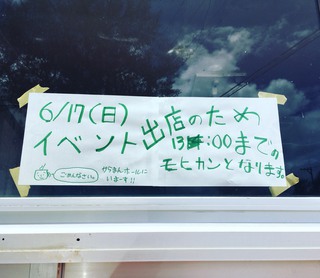 6/17(日)
イベント出店のため
13時:00までの
モヒカンとなります。
ごめんなさい。
からまんホールに
いまーす!!